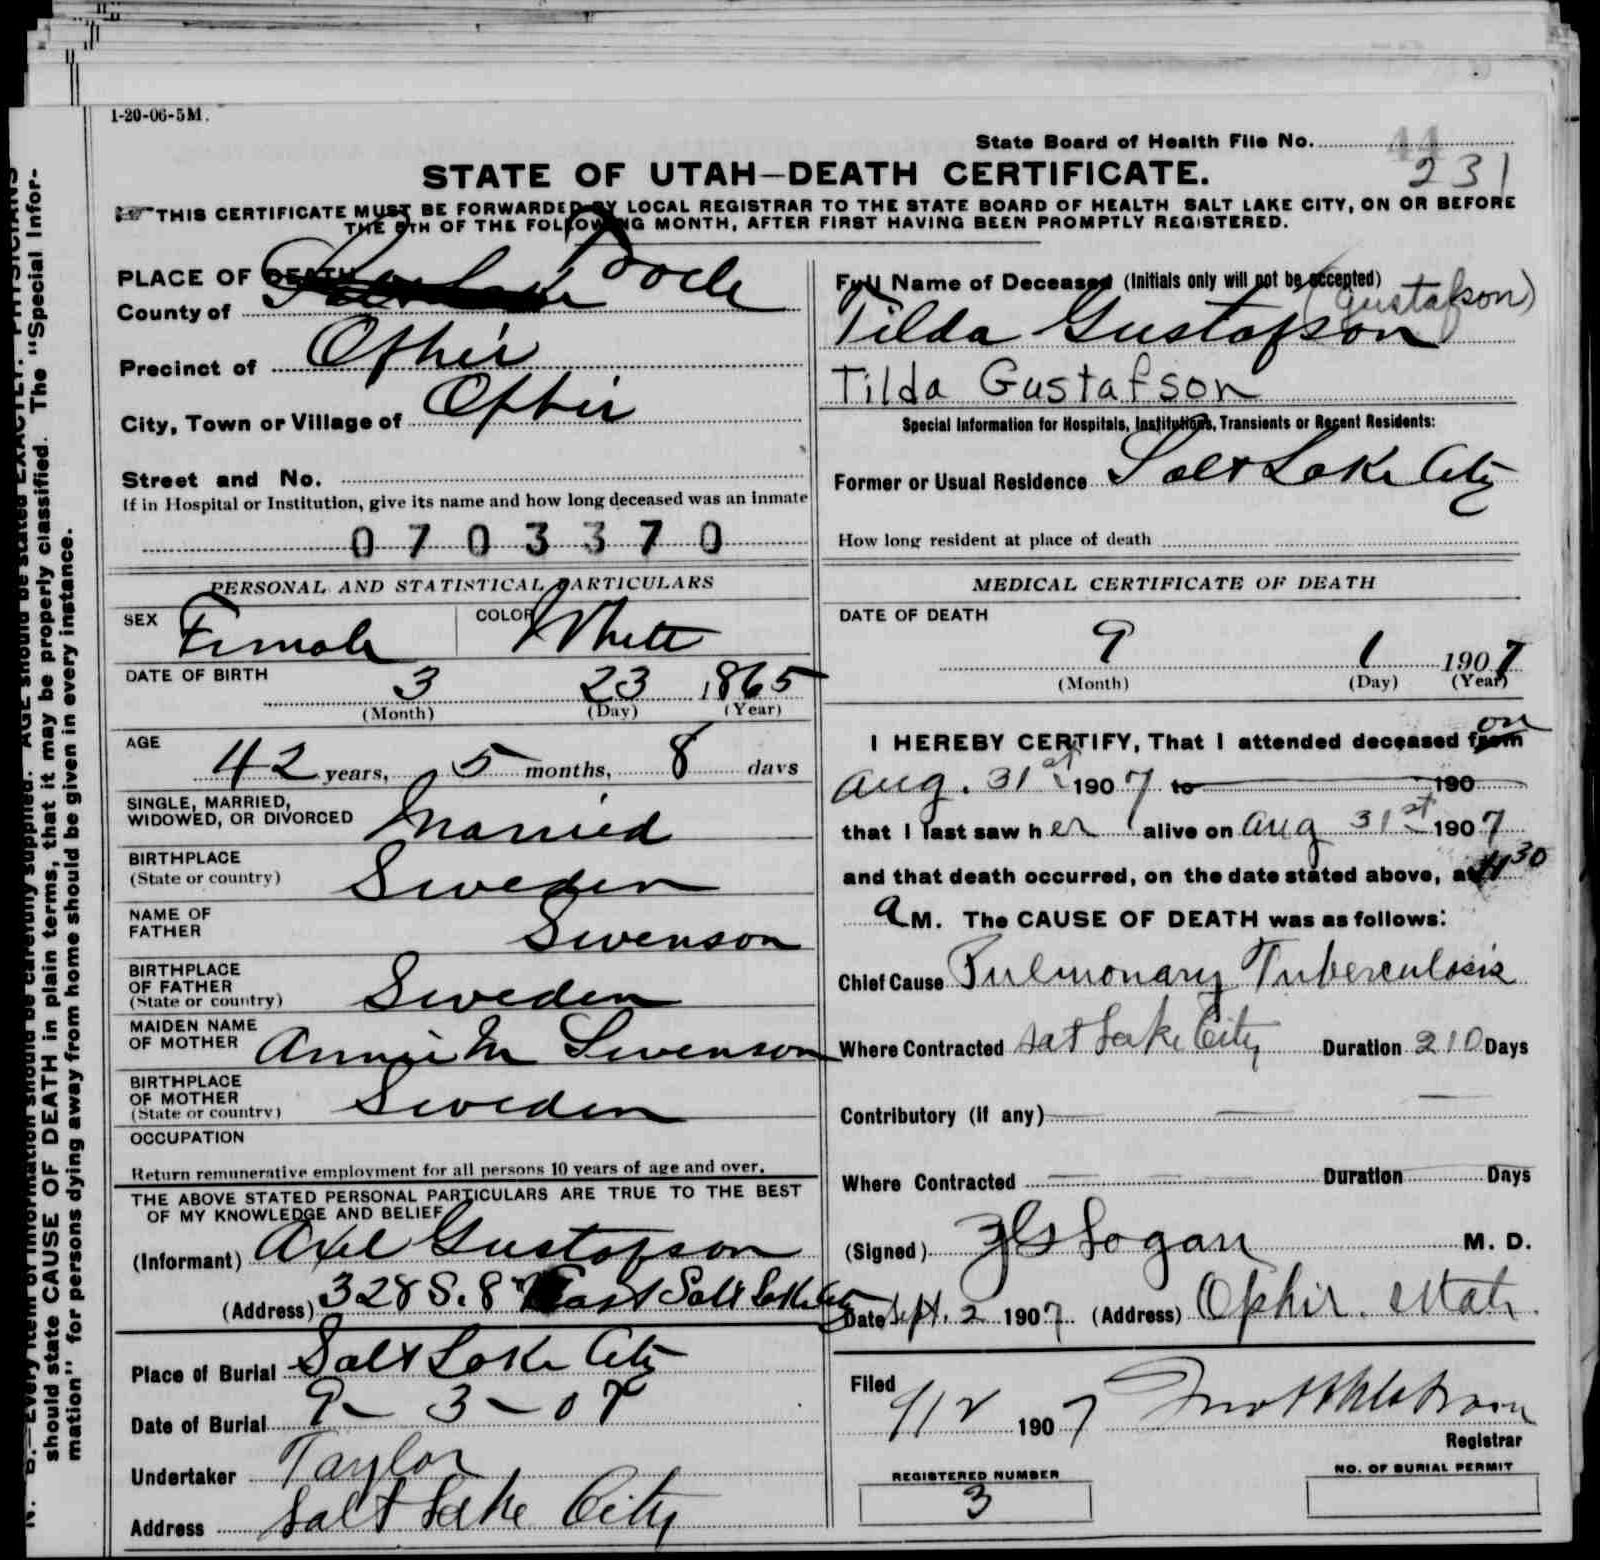 1-20-06-5M.
State Board of Health File No. 44
231
STATE OF UTAH—DEATH CERTIFICATE.
THIS CERTIFICATE MUST BE FORWARDED BY LOCAL REGISTRAR TO THE STATE BOARD OF HEALTH SALT LAKE CITY, ON OR BEFORE
THE 5TH OF THE FOLLOWING MONTH, AFTER FIRST HAVING BEEN PROMPTLY REGISTERED.
PLACE OF DEATH
County of Salt Lake Tooele
Precinct of Ophir
City, Town or Village of Ophir
Street and No.
If in Hospital or Institution, give its name and how long deceased was an Inmate
0703370
PERSONAL AND STATISTICAL PARTICULARS
SEX Female COLOR White
DATE OF BIRTH 3 23 1865
(Month) (Day) (Year)
AGE 42 years, 5 months, 8 days
SINGLE, MARRIED,
WIDOWED, OR DIVORCED Married
BIRTHPLACE
(State or country) Sweden
NAME OF
FATHER Swenson
BIRTHPLACE
OF FATHER
(State or country) Sweden
MAIDEN NAME
OF MOTHER Annie M Swenson
BIRTHPLACE
OF MOTHER
(State or country) Sweden
OCCUPATION
Return remunerative employment for all persons 10 years of age and over.
THE ABOVE STATED PERSONAL PARTICULARS ARE TRUE TO THE BEST
OF MY KNOWLEDGE AND BELIEF
(Informant) Axel Gustafson
(Address) 328 S. 8 East Salt Lake City
Place of Burial Salt Lake City
Date of Burial 9-3-07
Undertaker Taylor
Address Salt Lake City
Full Name of Deceased (Initials only will not be accepted)
(Gustafson)
Tilda Gustafson
Tilda Gustafson
Special Information for Hospitals, Institutions, Transients or Recent Residents:
Former or Usual Residence Salt Lake City
How long resident at place of death
MEDICAL CERTIFICATE OF DEATH
DATE OF DEATH
9 1 1907
(Month) (Day) (Year)
on
I HEREBY CERTIFY, That I attended deceased from
Aug. 31st 1907 to 190
that I last saw her alive on Aug 31st 1907
and that death occurred, on the date stated above, at 11 30
a M. The CAUSE OF DEATH was as follows:
Chief Cause Pulmonary Tuberculosis
Where Contracted Salt Lake City Duration 210 Days
Contributory (if any)
Where Contracted Duration Days
(Signed) Logan M. D.
Date Sept. 2 1907 (Address) Ophir. Utah.
Filed 9/2 1907
Registrar
REGISTERED NUMBER
3
NO. OF BURIAL PERMIT
should state CAUSE OF DEATH in plain terms, that it may be properly classified. The "Special Infor-
mation" for persons dying away from home should be given in every instance.